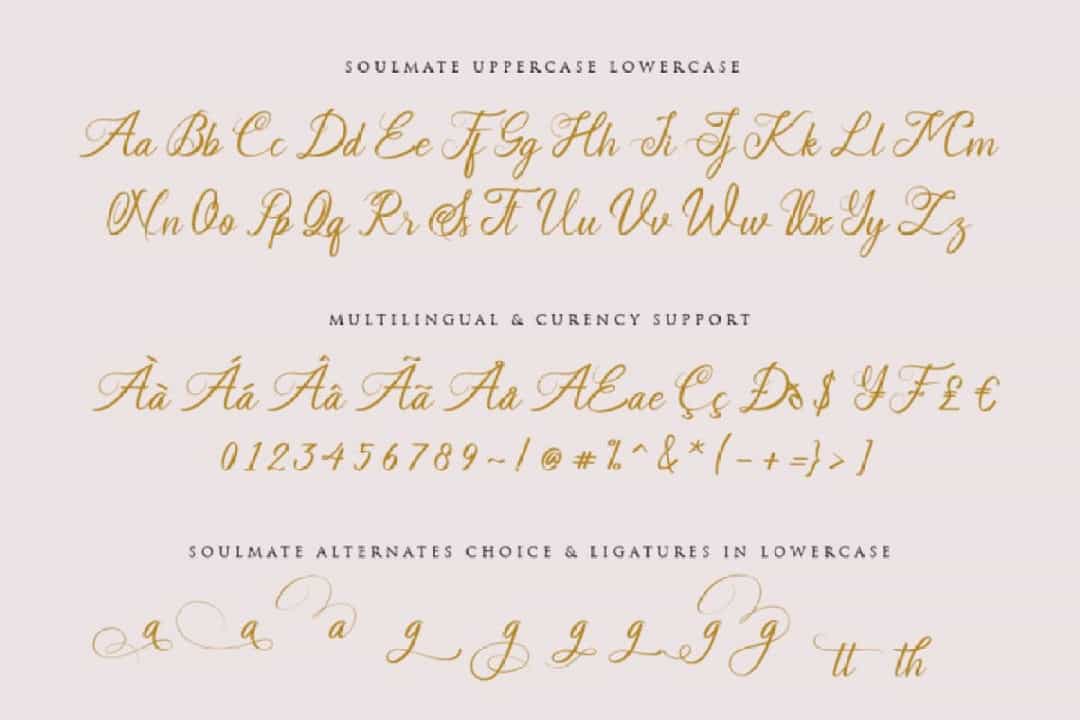 SOULMATE UPPERCASE LOWERCASE
Aa Bb Cc Dd Ee Ff Gg Hh Ii Jj Kk Ll Mm
Nn Oo Pp Qq Rr Ss Tt Uu Vv Ww Xx Yy Zz
MULTILINGUAL & CURENCY SUPPORT
Àà Áá Ââ Ãã Åå Æae Çç Ðð $ ¥ ₣ £ €
0 1 2 3 4 5 6 7 8 9 ~ ! @ # % ^ & * ( - + = } > ]
SOULMATE ALTERNATES CHOICE & LIGATURES IN LOWERCASE
a a a g g g g g g tt th